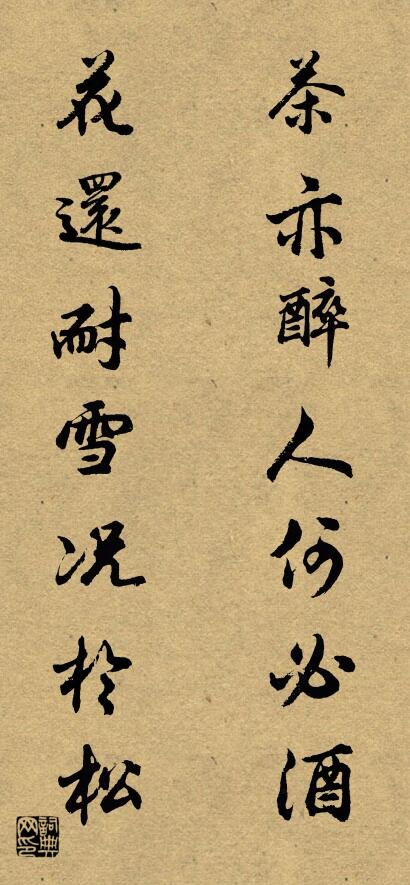 茶亦醉人何必酒
花還耐雪况於松
詞典網印